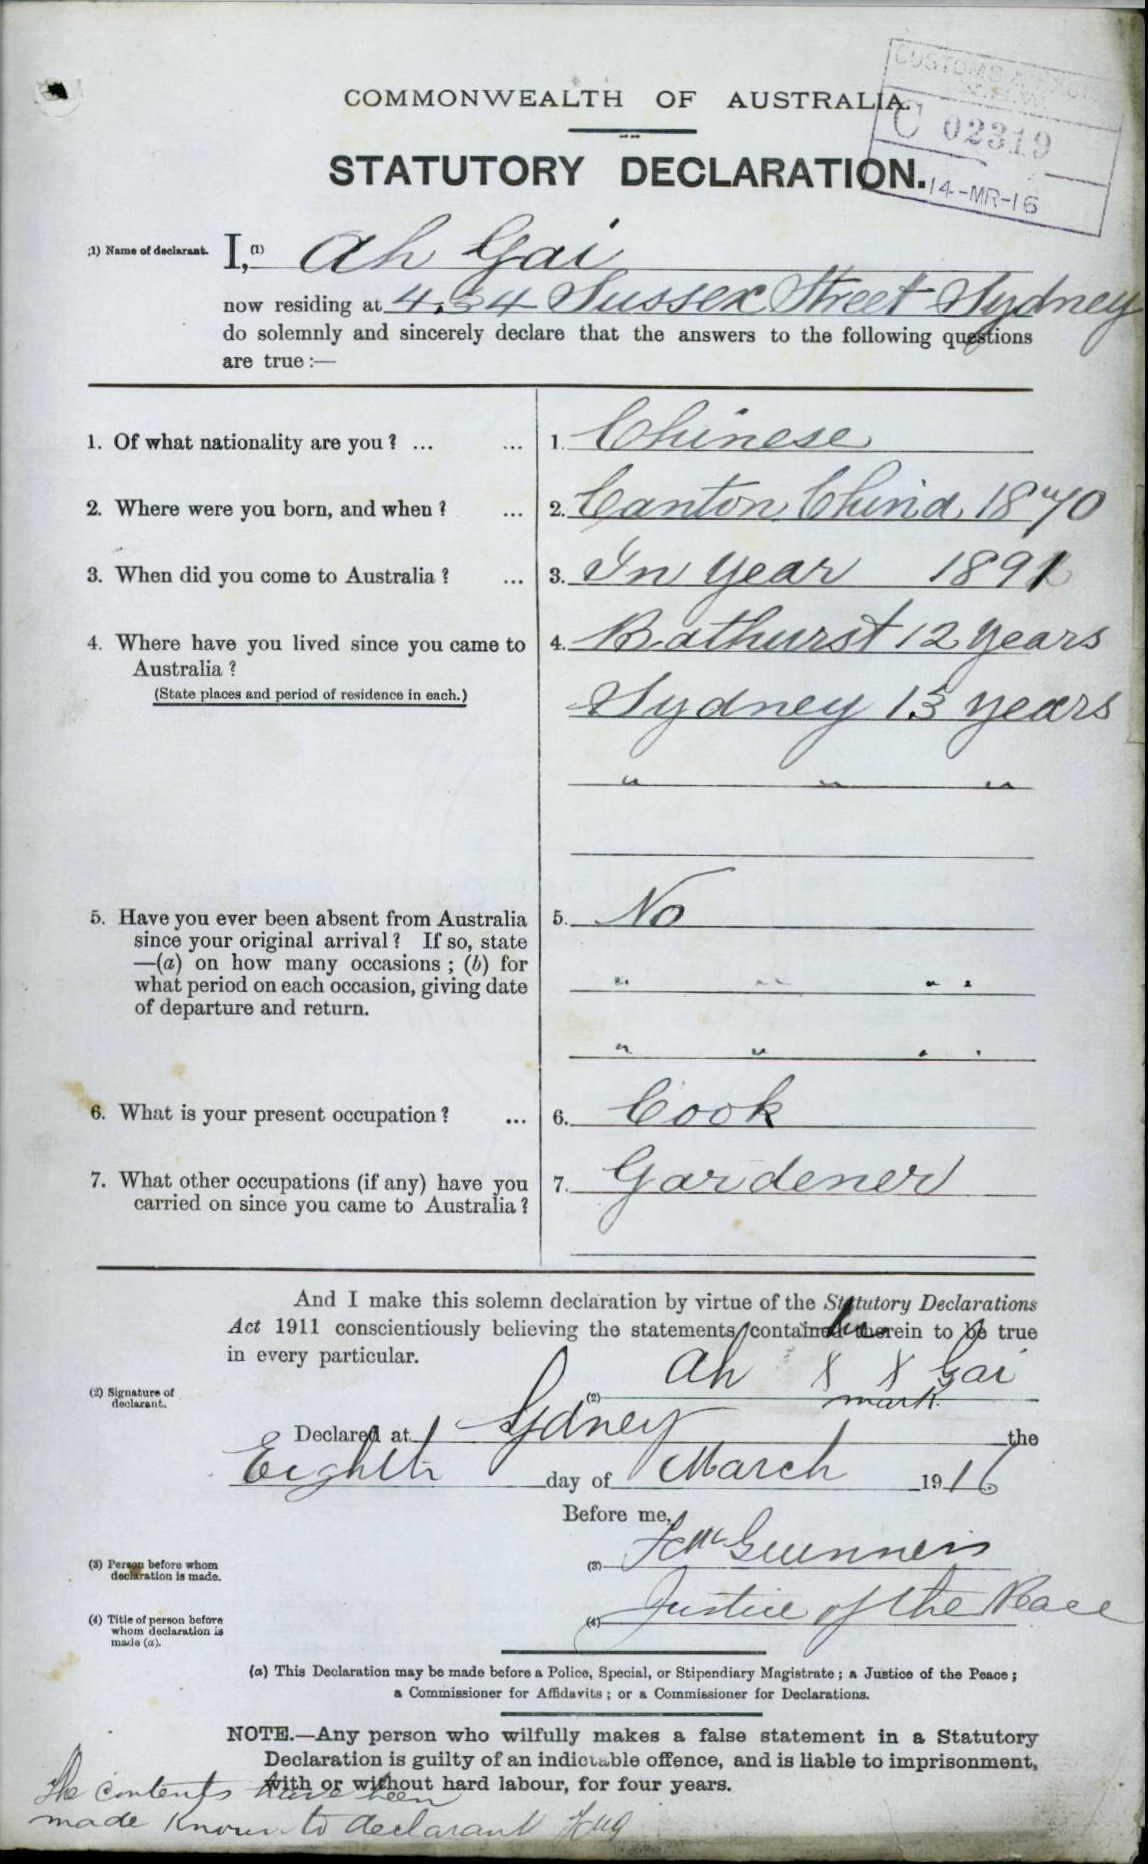 CUSTOMS
N.S.W.
C 02319
14-MR-16
COMMONWEALTH OF AUSTRALIA.
STATUTORY DECLARATION.
(1) Name of declarant. I, (1) Ah Gai
now residing at 434 Sussex Street Sydney
do solemnly and sincerely declare that the answers to the following questions
are true :—
1. Of what nationality are you ? ... ... 1. Chinese
2. Where were you born, and when ? ... 2. Canton China 1870
3. When did you come to Australia ? ... 3. In year 1891
4. Where have you lived since you came to 4. Bathurst 12 years
Australia ?
(State places and period of residence in each.)
Sydney 13 years
" " "
5. Have you ever been absent from Australia 5. No
since your original arrival ? If so, state
—(a) on how many occasions ; (b) for
what period on each occasion, giving date
of departure and return.
" " " "
" " " "
6. What is your present occupation ? ... 6. Cook
7. What other occupations (if any) have you 7. Gardener
carried on since you came to Australia ?
And I make this solemn declaration by virtue of the Statutory Declarations
Act 1911 conscientiously believing the statements contained therein to be true
in every particular.
his
(2) Signature of declarant. (2) Ah X X Gai
mark
Declared at Sydney the
Eighth day of March 1916
Before me,
(3) Person before whom declaration is made. (3)
(4) Title of person before whom declaration is made (a). (4) Justice of the Peace
(a) This Declaration may be made before a Police, Special, or Stipendiary Magistrate ; a Justice of the Peace ;
a Commissioner for Affidavits ; or a Commissioner for Declarations.
NOTE.—Any person who wilfully makes a false statement in a Statutory
Declaration is guilty of an indictable offence, and is liable to imprisonment,
with or without hard labour, for four years.
The contents have been
made known to declarant